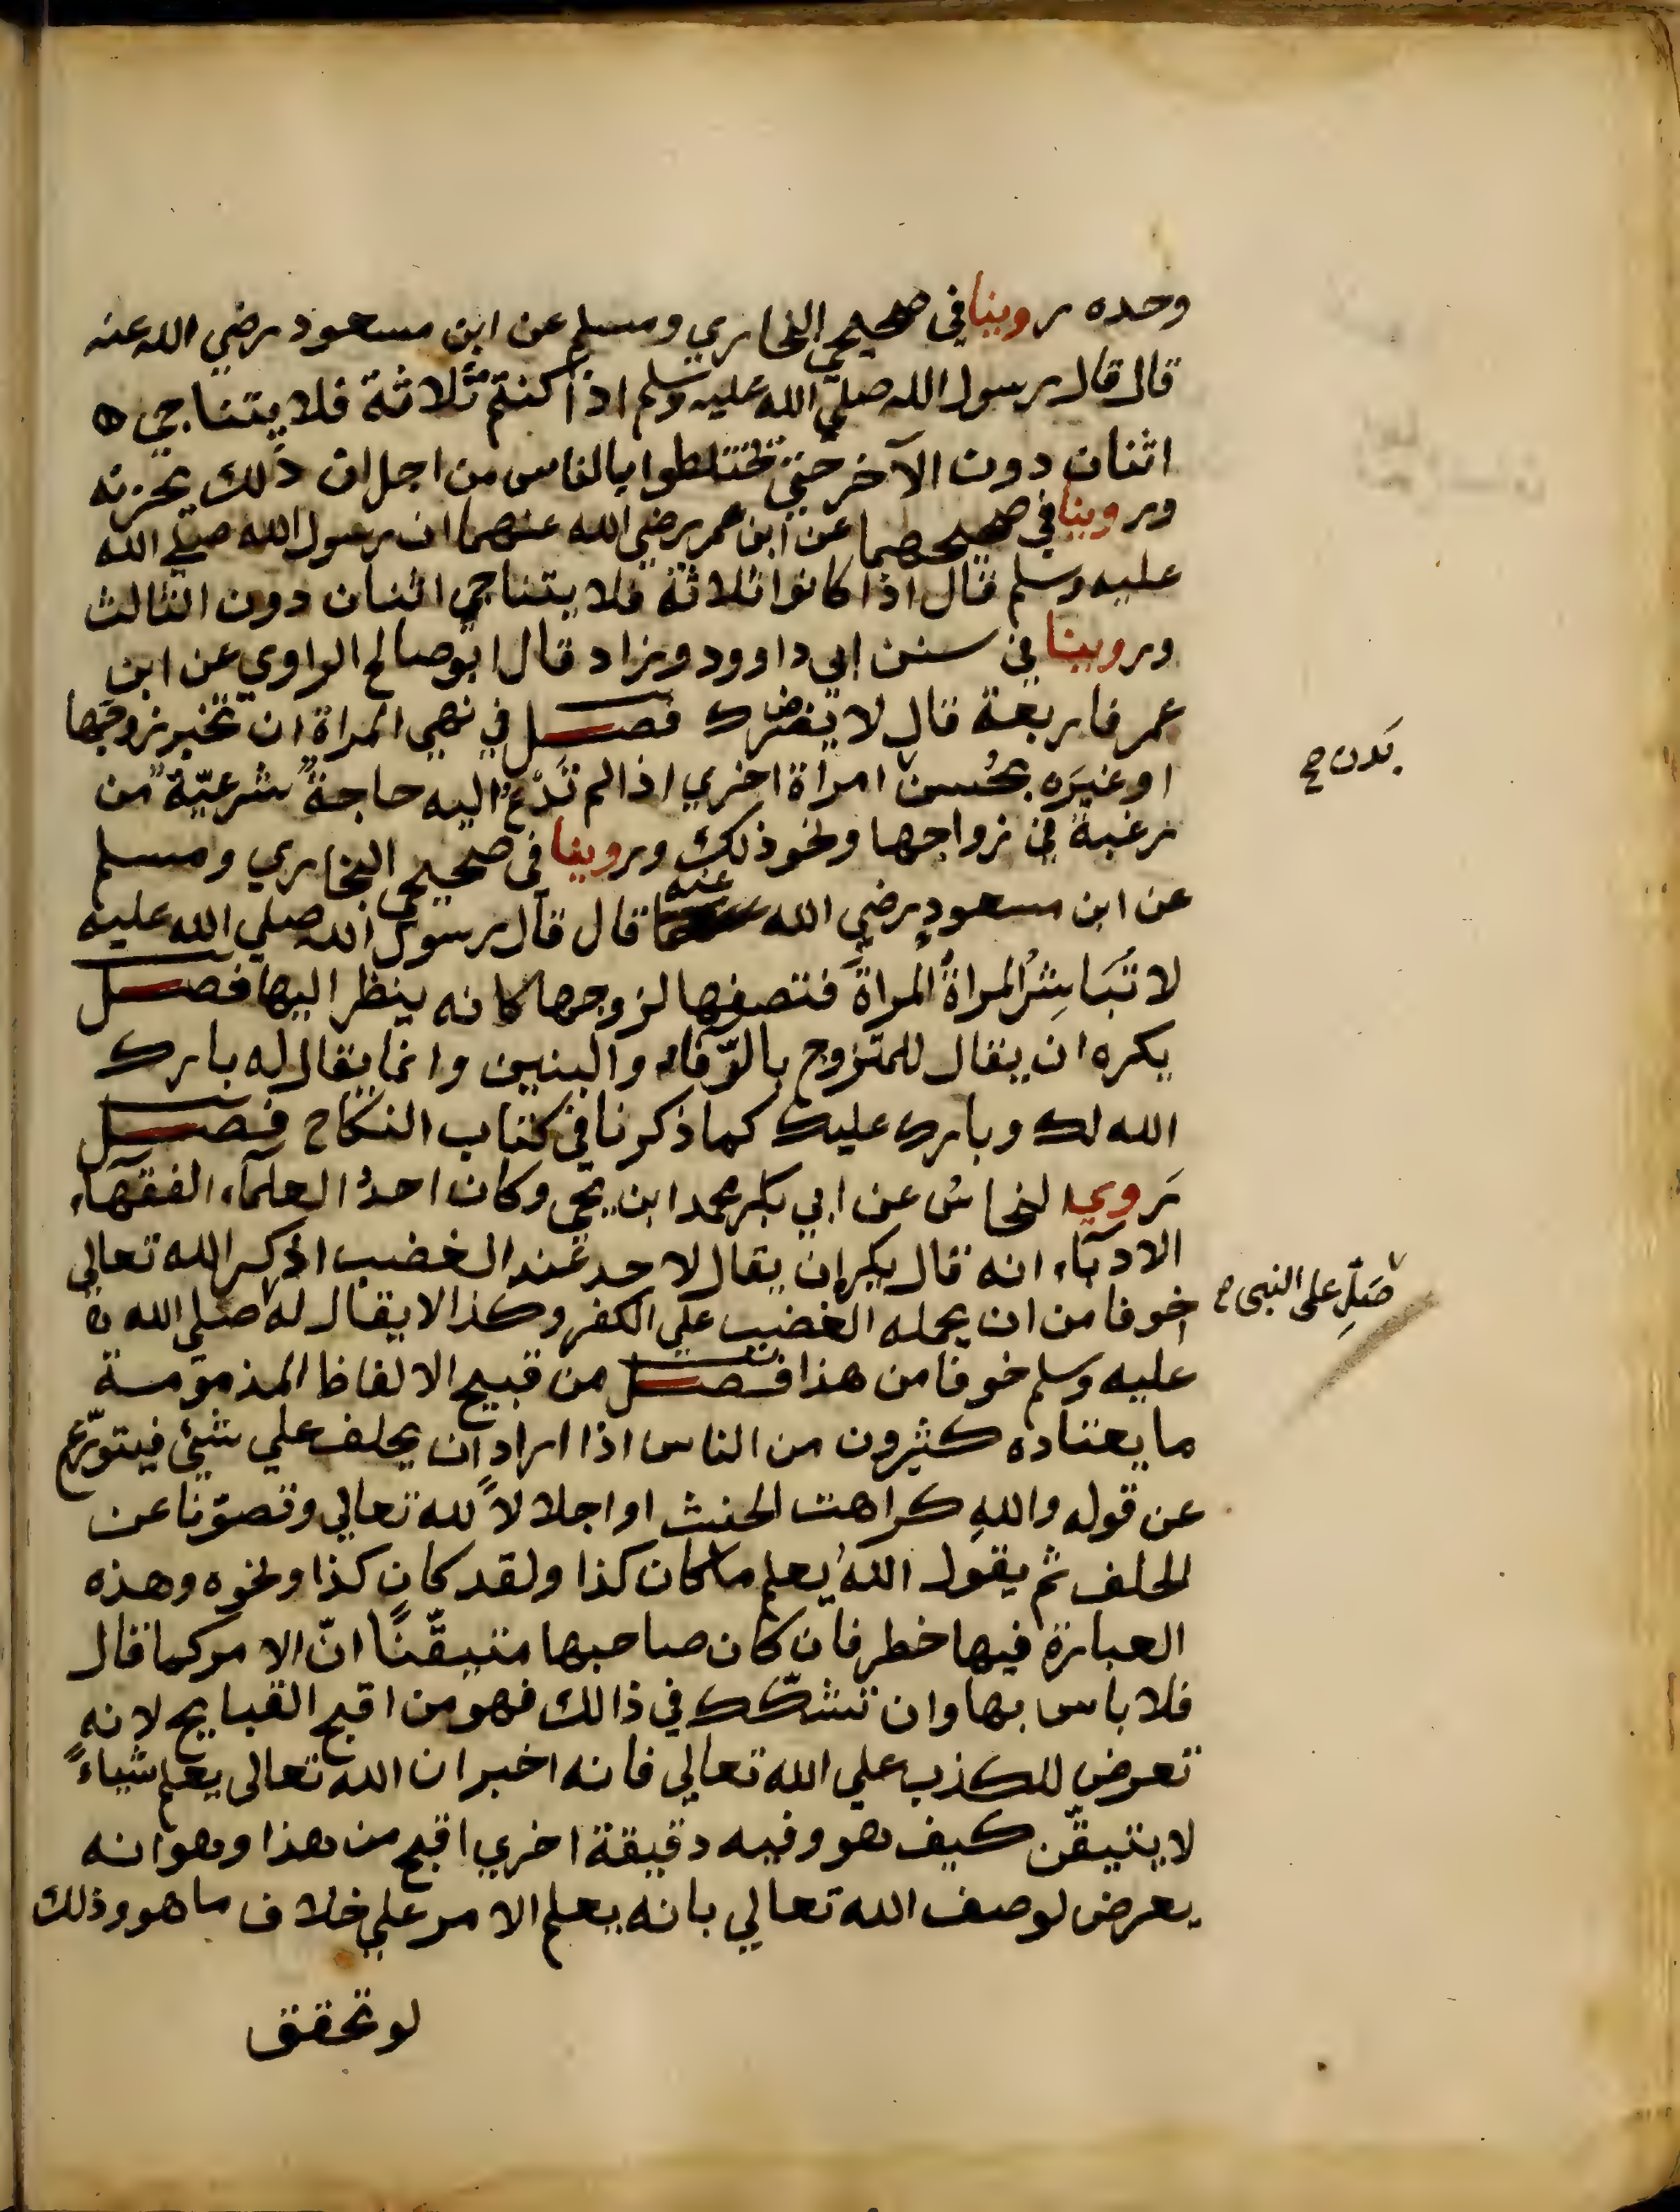 وحده روينا في صحيحي البخاري ومسلم عن ابن مسعود رضي الله عنه
قال قال رسول الله صلي الله عليه وسلم اذا كنتم ثلاثة فلا يتناجي ه
اثنان دون الآخر حتي تختلطوا بالناس من اجل ان ذلك يحزنه
وروينا في صحيحهما عن ابن عمر رضي الله عنهما ان رسول الله صلي الله
عليه وسلم قال اذا كانوا ثلاثة فلا يتناجي اثنان دون الثالث
وروينا في سنن ابي داوود وزاد قال ابو صالح الراوي عن ابن
عمر فاربعة قال لا يضرك فصل في نهي المراة ان تخبر زوجها
او غيره بحُسن امراة اخري اذا لم تدعُ اليه حاجةٌ شرعيّةٌ من
رغبة في زواجها ونحو ذلك وروينا في صحيحي البخاري ومسلم
عن ابن مسعودٍ رضي الله عنه قال قال رسول الله صلي الله عليه
لا تُبَاشِرُ المراةُ المراةَ فتصفها لزوجها كانه ينظر اليها فصل
يكره ان يقال للمتزوج بالرّفاء والبنين وانما يقال له بارك
الله لك وبارك عليك كما ذكرنا في كتاب النكاح فصل
روي النحاسُ عن ابي بكر محمد ابن يحي وكان احدُ العلمآء الفقهآء
الادبآء انه قال يكره ان يقال لاحد عند الغضب اذكر الله تعالي
خوفا من ان يحمله الغضب علي الكفر وكذا لا يقال له صلي الله
عليه وسلم خوفا من هذا فصل من قبيح الالفاظ المذمومة
ما يعتاده كثيرون من الناس اذا اراد ان يحلف علي شيئ فيتورّع
عن قوله واللهِ كراهت الحنث او اجلالاً لله تعالي وتصوّنا عن
الحلف ثم يقول اللهُ يعلم ما كان كذا ولقد كان كذا ونحوه وهذه
العبارة فيها خطر فان كان صاحبها متيقّنًا انّ الامر كما قال
فلا باس بها وان تشكّك في ذالك فهو من اقبح القبايح لانه
تعرض للكذب علي الله تعالي فانه اخبر ان الله تعالى يعلم شياءً
لا يتيقّن كيف هو وفيه دقيقة اخري اقبح من هذا وهو انه
يعرض لوصف الله تعالي بانه يعلم الامر علي خلاف ما هو وذلك
لو تحقق
بدن صح
صَلِّ على النبى